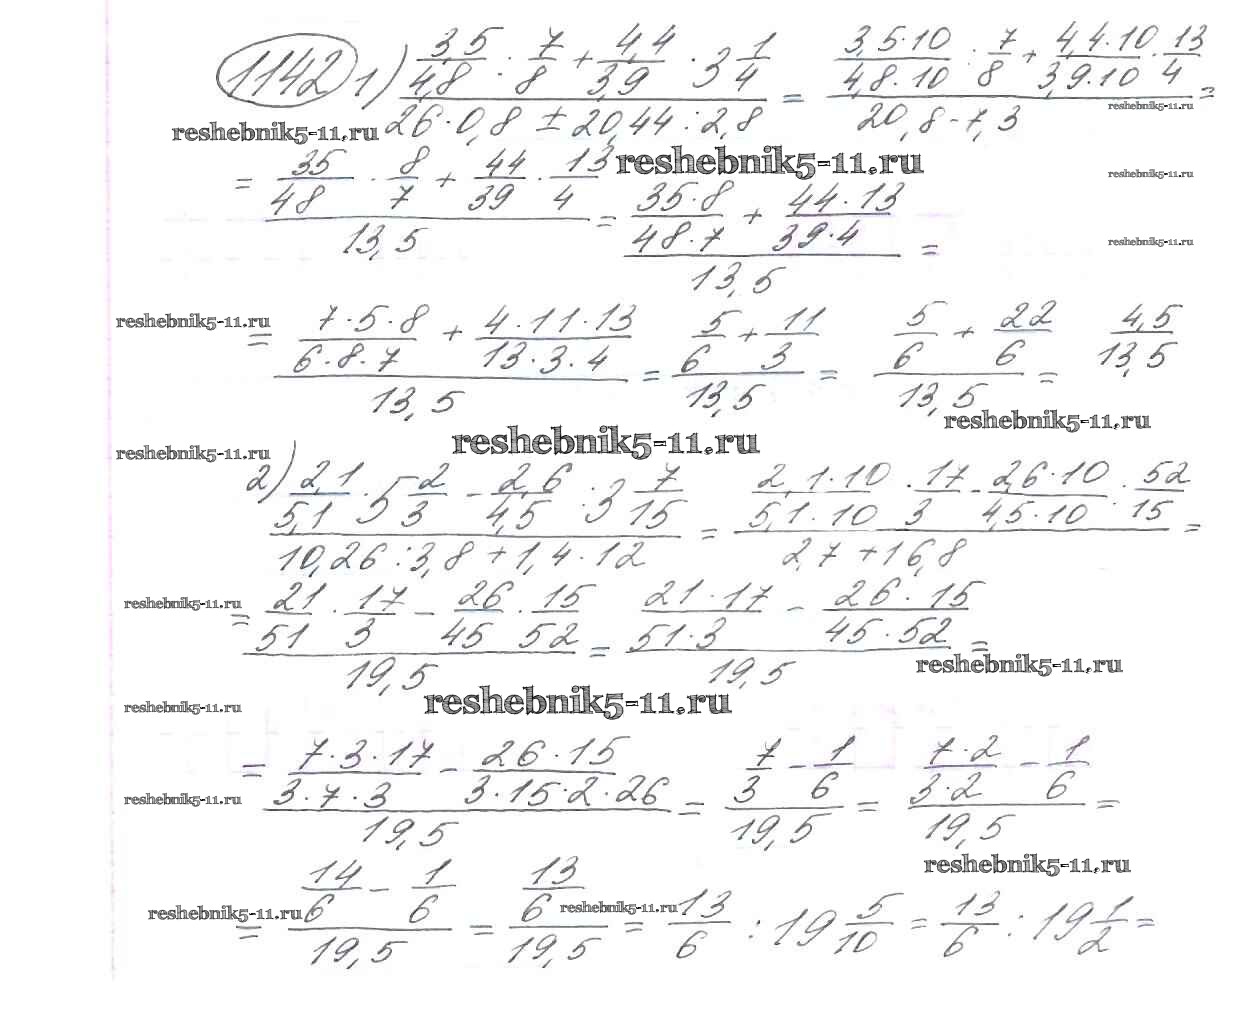 1142 1) (3,5/4,8 : 7/8 + 4,4/3,9 · 3 1/4) / (26·0,8 ± 20,44 : 2,8) = (3,5·10/4,8·10 : 7/8 + 4,4·10/3,9·10 · 13/4) / (20,8 - 7,3) =
reshebnik5-11.ru reshebnik5-11.ru
= (35/48 · 8/7 + 44/39 · 13/4) / 13,5 = (35·8/48·7 + 44·13/39·4) / 13,5 =
reshebnik5-11.ru reshebnik5-11.ru
reshebnik5-11.ru
reshebnik5-11.ru
= (7·5·8/6·8·7 + 4·11·13/13·3·4) / 13,5 = (5/6 + 11/3) / 13,5 = (5/6 + 22/6) / 13,5 = 4,5/13,5
reshebnik5-11.ru
reshebnik5-11.ru reshebnik5-11.ru
2) (2,1/5,1 · 5 2/3 - 2,6/4,5 : 3 7/15) / (10,26 : 3,8 + 1,4·12) = (2,1·10/5,1·10 · 17/3 - 2,6·10/4,5·10 : 52/15) / (2,7 + 16,8) =
reshebnik5-11.ru
= (21/51 · 17/3 - 26/45 · 15/52) / 19,5 = (21·17/51·3 - 26·15/45·52) / 19,5 =
reshebnik5-11.ru
reshebnik5-11.ru reshebnik5-11.ru
= (7·3·17/3·7·3 - 26·15/3·15·2·26) / 19,5 = (7/3 - 1/6) / 19,5 = (7·2/3·2 - 1/6) / 19,5 =
reshebnik5-11.ru
reshebnik5-11.ru
= (14/6 - 1/6) / 19,5 = (13/6) / 19,5 = 13/6 : 19 5/10 = 13/6 : 19 1/2 =
reshebnik5-11.ru reshebnik5-11.ru